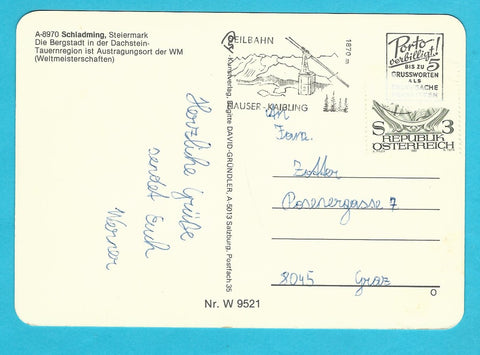 A-8970 Schladming, Steiermark
Die Bergstadt in der Dachstein-
Tauernregion ist Austragungsort der WM
(Weltmeisterschaften)
Herzliche Grüße
sendet Euch
Werner
Kunstverlag, Brigitte DAVID-GRÜNDLER, A-5013 Salzburg, Postfach 35
SEILBAHN
1870 m
HAUSER-KAIBLING
Porto
verbilligt!
BIS ZU 5
GRUSSWORTEN
ALS
S 3
REPUBLIK
ÖSTERREICH
An
Fam.
Zotter
Posenergasse 7
8045 Graz
Nr. W 9521